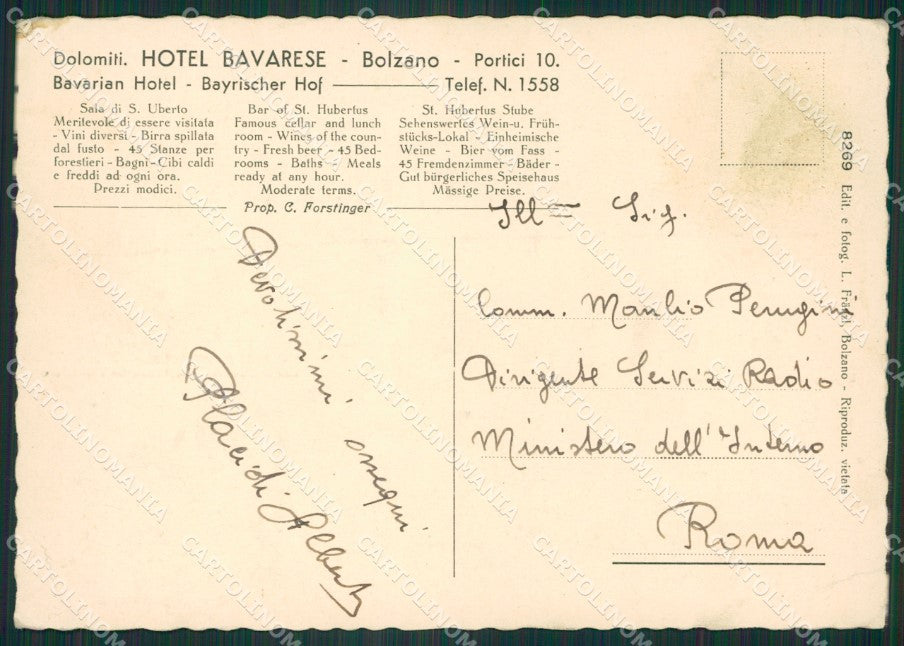 Dolomiti. HOTEL BAVARESE - Bolzano - Portici 10.
Bavarian Hotel - Bayrischer Hof ——— Telef. N. 1558
Sala di S. Uberto
Meritevole di essere visitata
- Vini diversi - Birra spillata
dal fusto - 45 Stanze per
forestieri - Bagni - Cibi caldi
e freddi ad ogni ora.
Prezzi modici.
Bar of St. Hubertus
Famous cellar and lunch
room - Wines of the coun-
try - Fresh beer - 45 Bed-
rooms - Baths - Meals
ready at any hour.
Moderate terms.
St. Hubertus Stube
Sehenswertes Wein-u. Früh-
stücks-Lokal - Einheimische
Weine - Bier vom Fass -
45 Fremdenzimmer - Bäder -
Gut bürgerliches Speisehaus
Mässige Preise.
Prop. C. Forstinger
Devotissimi ossequi
Placidi Alberto
Ill= Sig.
Comm. Manlio Perugini
Dirigente Servizi Radio
Ministero dell'Interno
Roma
8269 Edit. e fotog. L. Fränzl, Bolzano - Riproduz. vietata
CARTOLINOMANIA